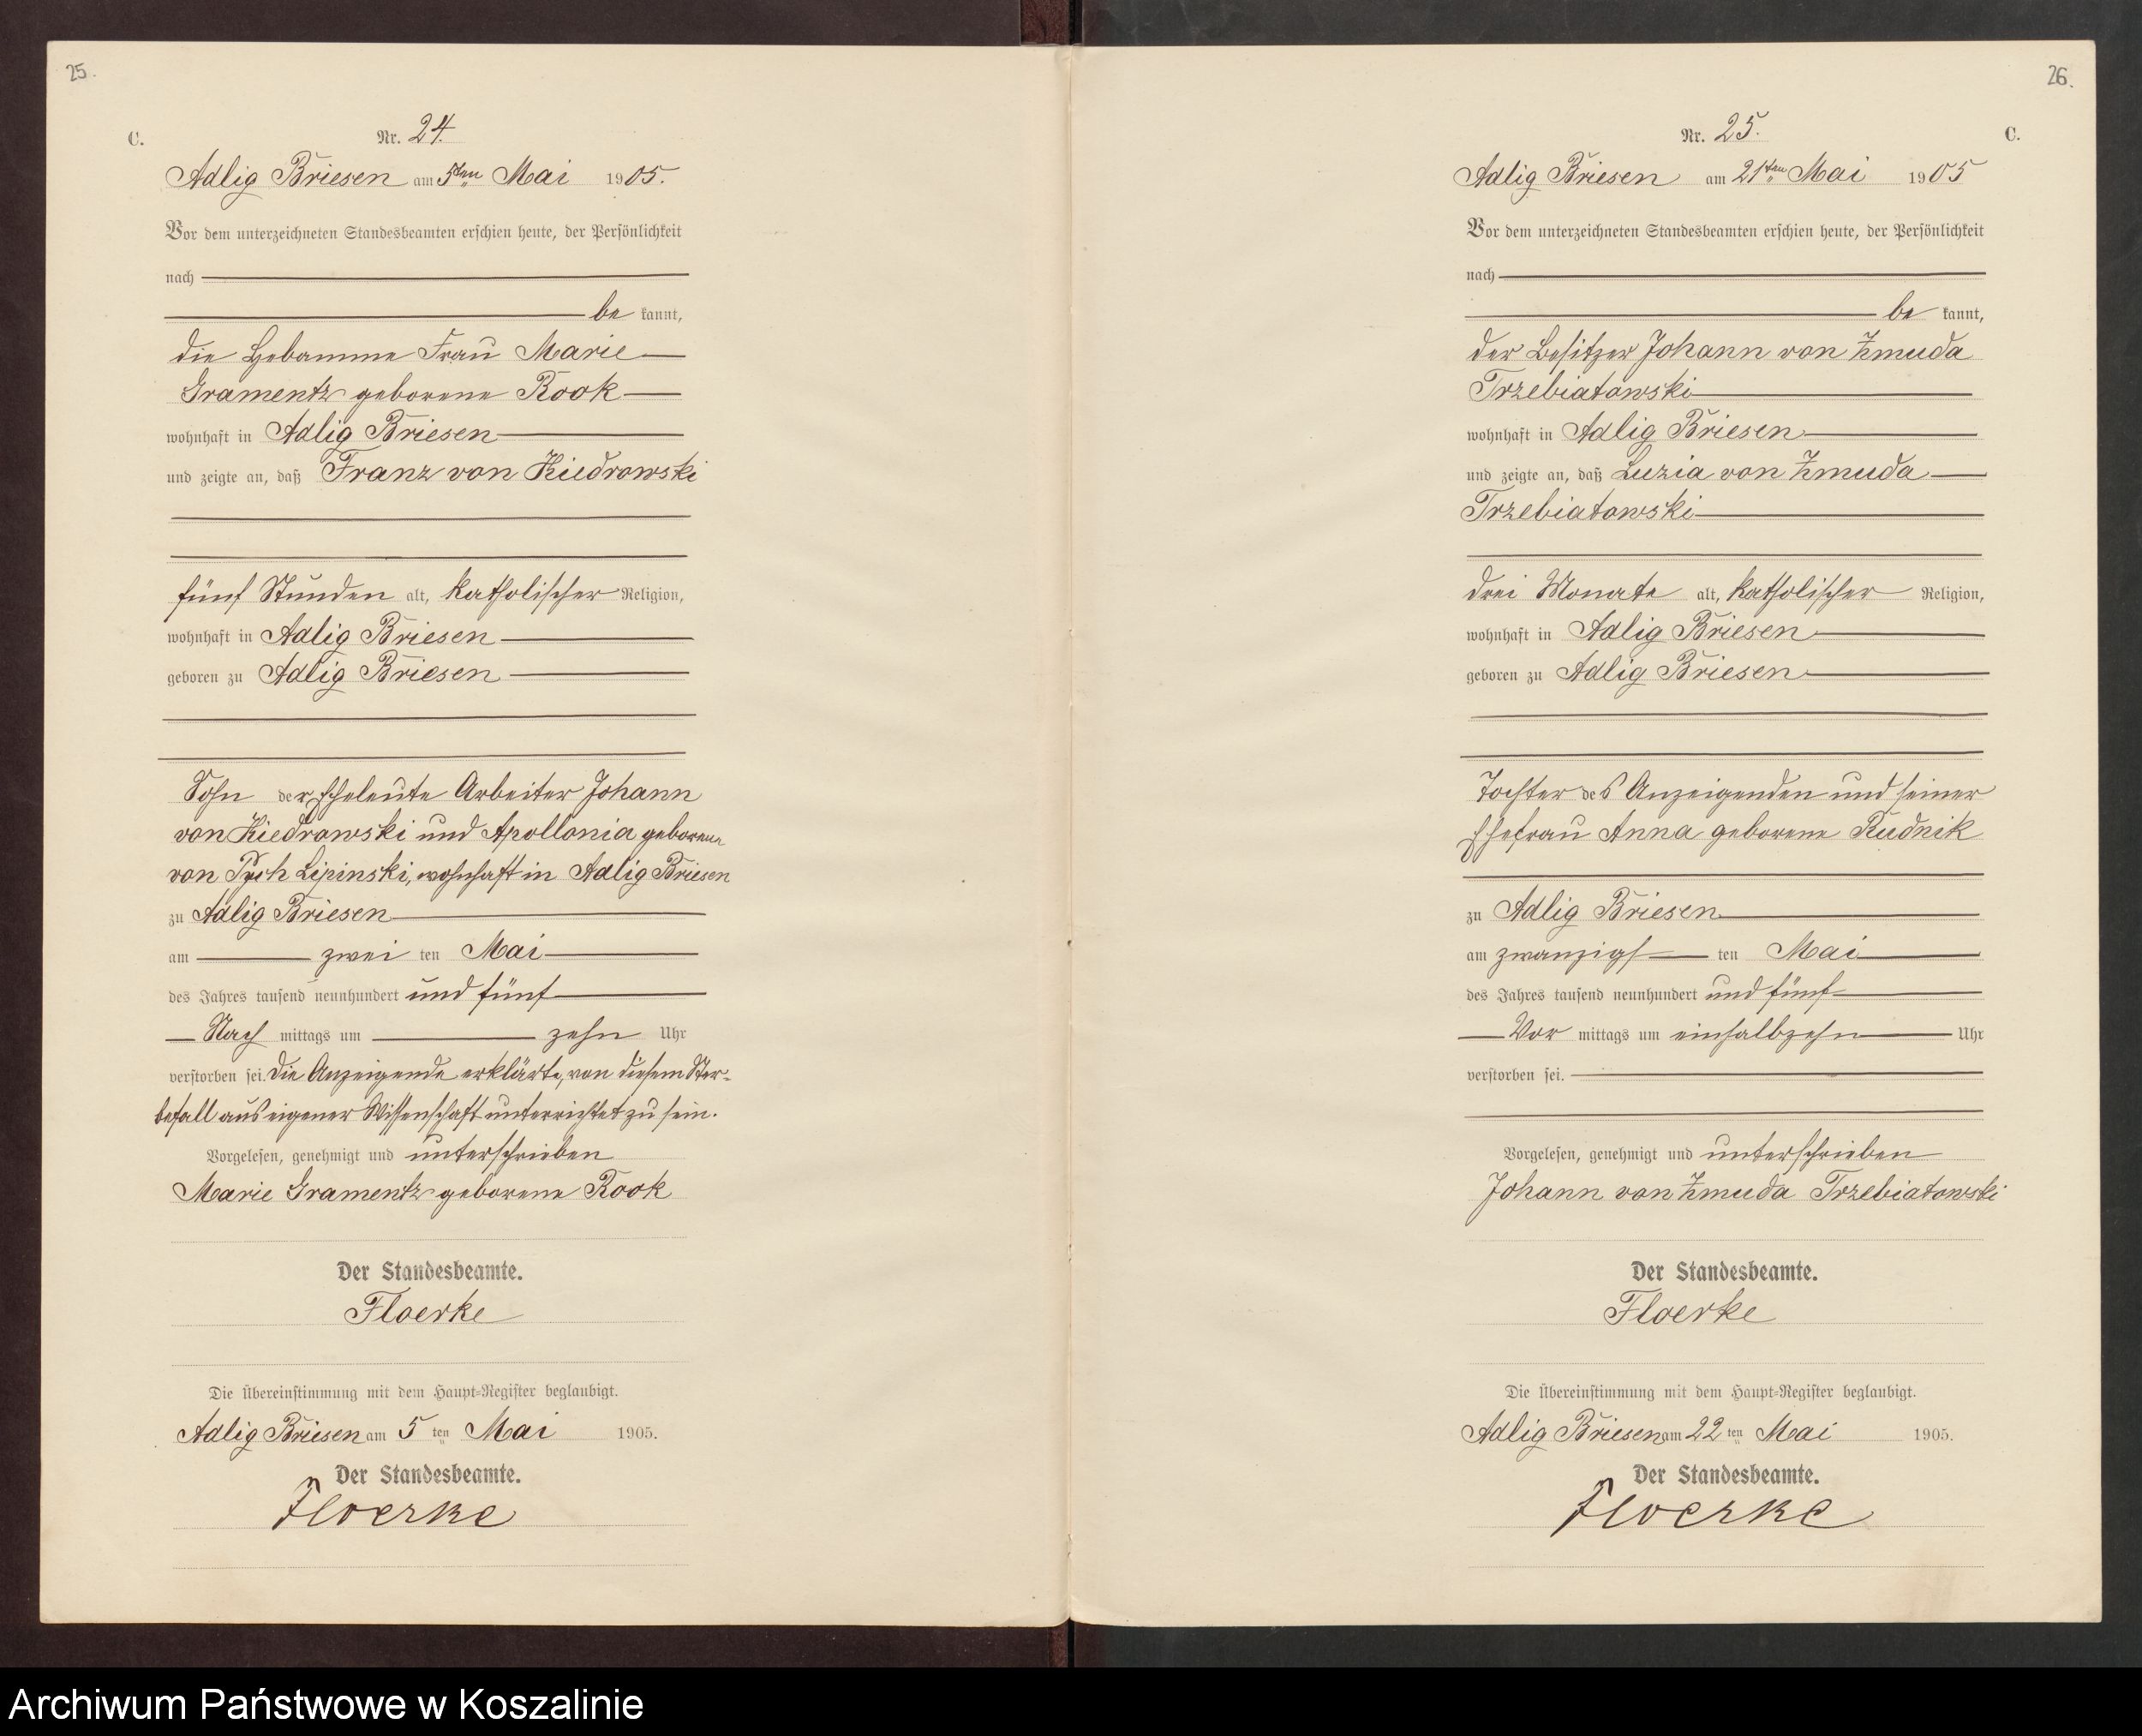 25.
C.
Nr. 24.
Adlig Briesen am 5ten Mai 1905.
Vor dem unterzeichneten Standesbeamten erschien heute, der Persönlichkeit
nach
be kannt,
die Hebamme Frau Marie
Gramentz geborene Rook
wohnhaft in Adlig Briesen
und zeigte an, daß Franz von Kiedrowski
fünf Stunden alt, katholischer Religion,
wohnhaft in Adlig Briesen
geboren zu Adlig Briesen
Sohn der Eheleute Arbeiter Johann
von Kiedrowski und Apollonia geborene
von Pych Lipinski, wohnhaft in Adlig Briesen
zu Adlig Briesen
am zwei ten Mai
des Jahres tausend neunhundert und fünf
Nach mittags um zehn Uhr
verstorben sei. Die Anzeigende erklärte, von diesem Ster-
befall aus eigener Wissenschaft unterrichtet zu sein.
Vorgelesen, genehmigt und unterschrieben
Marie Gramentz geborene Rook
Der Standesbeamte.
Floerke
Die Übereinstimmung mit dem Haupt-Register beglaubigt.
Adlig Briesen am 5 ten Mai 1905.
Der Standesbeamte.
Floerke
26.
Nr. 25.
C.
Adlig Briesen am 21ten Mai 1905
Vor dem unterzeichneten Standesbeamten erschien heute, der Persönlichkeit
nach
be kannt,
der Besitzer Johann von Zmuda
Trzebiatowski
wohnhaft in Adlig Briesen
und zeigte an, daß Luzia von Zmuda
Trzebiatowski
drei Monate alt, katholischer Religion,
wohnhaft in Adlig Briesen
geboren zu Adlig Briesen
Tochter des Anzeigenden und seiner
Ehefrau Anna geborene Rudnik
zu Adlig Briesen
am zwanzigs ten Mai
des Jahres tausend neunhundert und fünf
Vor mittags um einhalbzehn Uhr
verstorben sei.
Vorgelesen, genehmigt und unterschrieben
Johann von Zmuda Trzebiatowski
Der Standesbeamte.
Floerke
Die Übereinstimmung mit dem Haupt-Register beglaubigt.
Adlig Briesen am 22 ten Mai 1905.
Der Standesbeamte.
Floerke
Archiwum Państwowe w Koszalinie